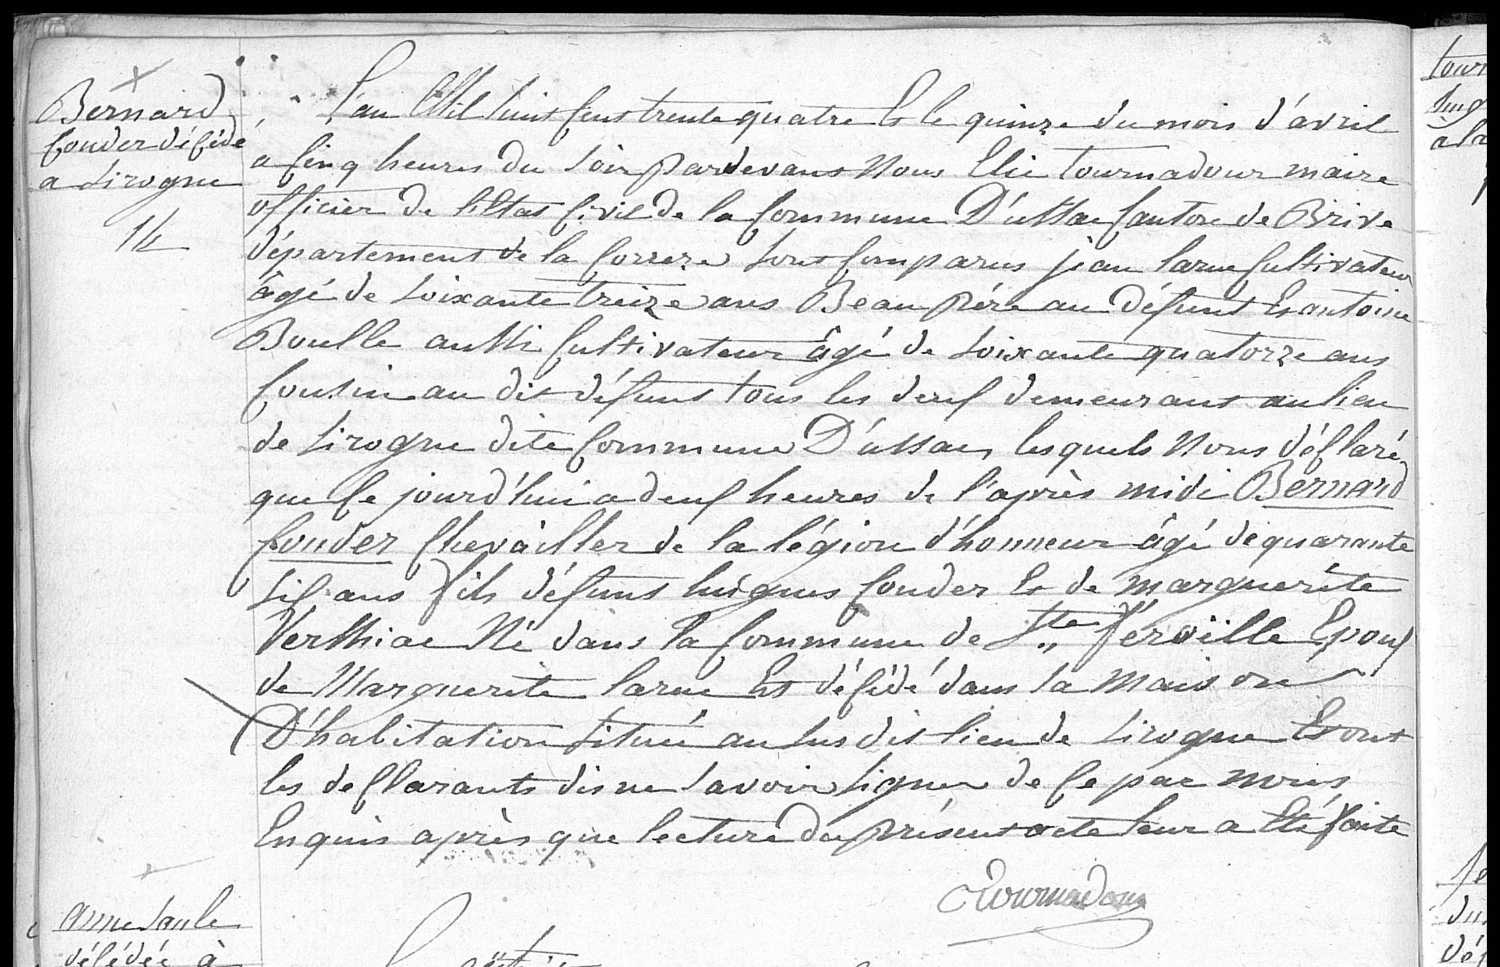 Bernard
Couder décédé
a Lirogne
14
L'an Mil huit cens trente quatre Et le quinze du mois d'avril
a cinq heures du soir pardevans Nous Elie tournadour maire
officier de l'Etat civil de la commune D'ussac canton de Brive
département de la Correze sont comparus jean larue cultivateur
âgé de soixante treize ans Beau père au défunt Et antoine
Bouelle aussi cultivateur âgé de soixante quatorze ans
Cousin au dit défunt tous les deux demeurant au lieu
de Lirogne dite commune D'ussac, lesquels Nous déclaré
que ce jourd'hui a deux heures de l'après midi Bernard
Couder chevailler de la légion d'honneur âgé de quarante
six ans fils défunt hugues Couder Et de marguerite
Verthiac Né dans la commune de Ste féréolle Epoux
de Marguerite larue Est décédé dans la maison
D'habitation située au susdit lieu de Lirogne Et ont
les declarants dit ne savoir signer de ce par nous
Enquis après que lecture du présent acte leur a Eté faite
Tournadour
anne
décédée à
tour
à la